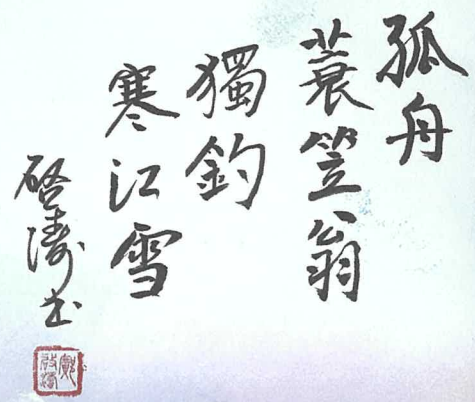 孤舟
蓑笠翁
獨釣
寒江雪
啓濤书